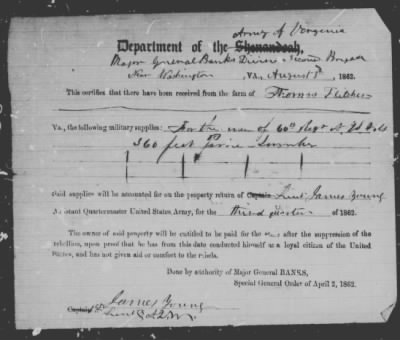 Army of Virginia
Department of the Shenandoah,
Major General Banks Division Second Brigade
Near Washington, VA, August 8th, 1862.
This certifies that there have been received from the farm of Thomas
Va., the following military supplies: For the use of 60th Regt N.Y. Vols
560 feet Pine Lumber
Said supplies will be accounted for on the property return of Captain Lieut James Young
Assistant Quartermaster United States Army, for the third quarter of 1862.
The owner of said property will be entitled to be paid for the same after the suppression of the
rebellion, upon proof that he has from this date conducted himself as a loyal citizen of the United
States, and has not given aid or comfort to the rebels.
Done by authority of Major General BANKS,
Special General Order of April 2, 1862.
James Young
Captain Lieut & A.Q.M.